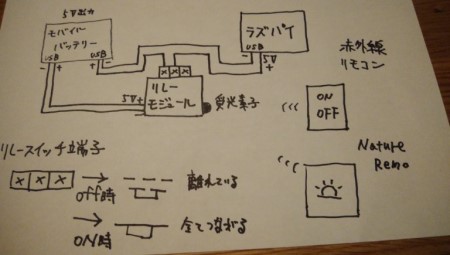 5V出力
モバイル
バッテリー
USB
USB
- +
- +
ラズパイ
USB
- 5V
+
5V+
-
リレー
モジュール
受光素子
赤外線
リモコン
ON
OFF
Nature
Remo
リレースイッチ端子
off時
離れている
ON時
全てつながる